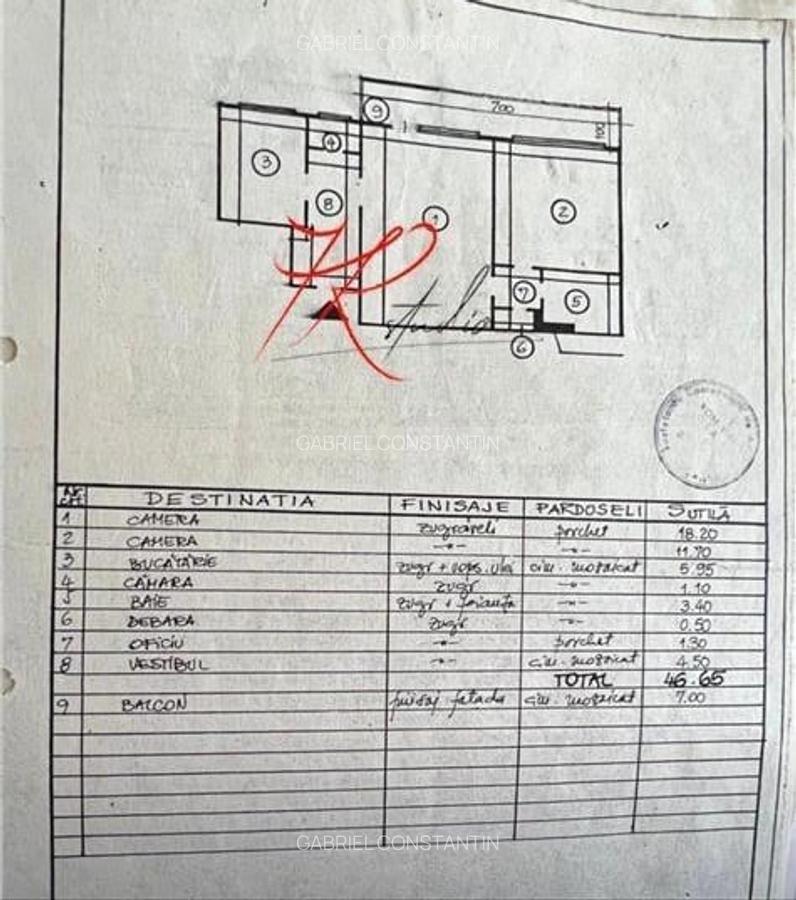 GABRIEL CONSTANTIN
9
700
100
4
3
8
1
2
7
5
6
studio
GABRIEL CONSTANTIN
DESTINATIA FINISAJE PARDOSELI SUTILĂ
1 CAMERA zugraveli parchet 18.20
2 CAMERA -"- -"- 11.70
3 BUCATARIE zugr + vops. ulei cim. mozaicat 5.95
4 CĂMARA zugr -"- 1.10
5 BAIE zugr + faianta -"- 3.40
6 DEBARA zugr -"- 0.50
7 OFICIU -"- parchet 1.30
8 VESTIBUL -"- cim. mozaicat 4.50
TOTAL 46.65
9 BALCON finisaj fatada cim. mozaicat 7.00
GABRIEL CONSTANTIN